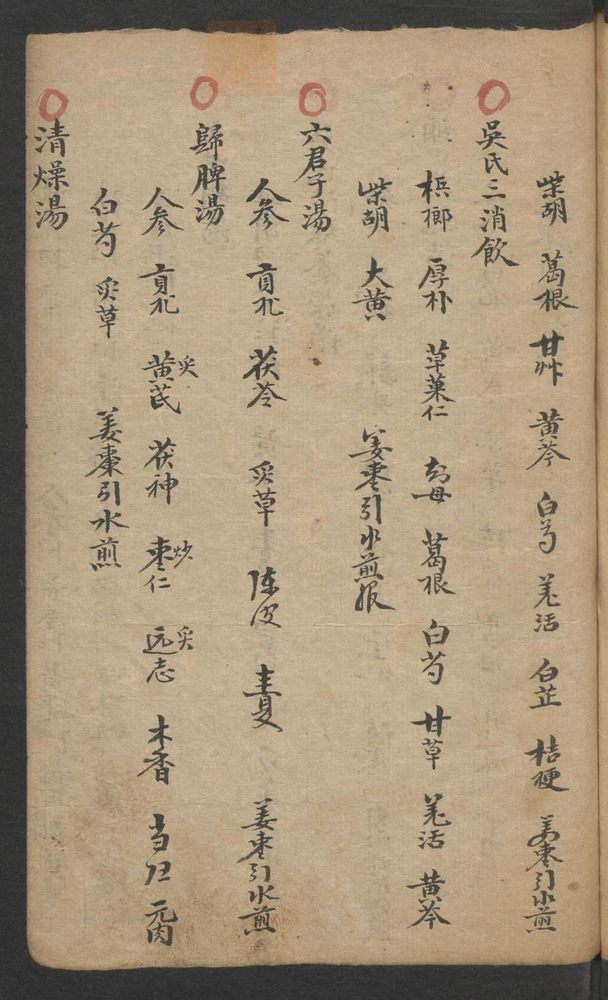 柴胡 葛根 甘艸 黄芩 白芍 羌活 白芷 桔梗 姜枣引水煎
吳氏三消飲
梹榔 厚朴 草菓仁 知母 葛根 白芍 甘草 羌活 黄芩
柴胡 大黄 姜枣引水煎服
六君子湯
人参 贡朮 茯苓 炙草 陈皮 夏 姜枣引水煎
歸脾湯
人参 贡朮 炙黄芪 茯神 炒枣仁 炙远志 木香 当归 元肉
白芍 炙草 姜棗引水煎
清燥湯